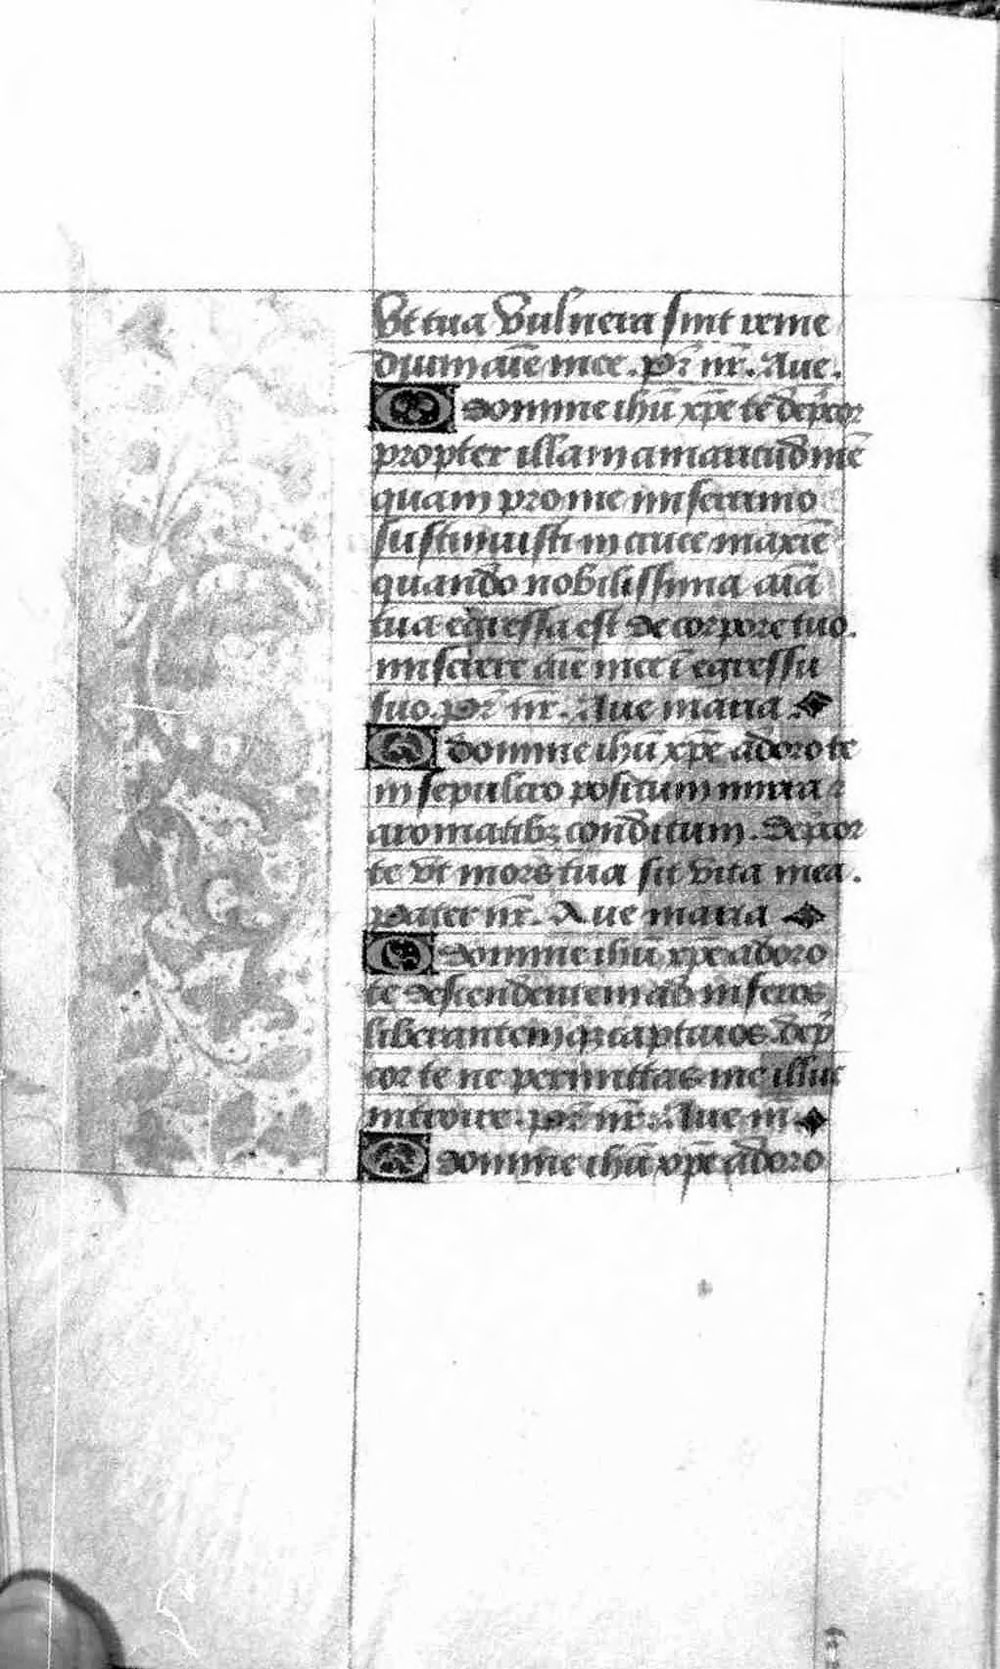 Vt tua vulnera sint reme
dium aīe mee. Pr̄ nr̄. Aue.
O domine ihū xp̄e te dep̄cor
propter illam amaritudinē
quam pro me miserrimo
sustinuisti in cruce maxīe
quando nobilissima aīa
tua egressa est de corpore tuo.
miserere aīe mee ī egressu
suo. Pr̄ nr̄. Aue maria.
O domine ihū xp̄e adoro te
in sepulcro positum mirra ⁊
aromatibꝫ conditum. Dep̄cor
te vt mors tua sit vita mea.
Pater nr̄. Aue maria
O domine ihū xp̄e adoro
te descendentem ad inferos
liberantemqꝫ captiuos. dep̄
cor te ne permittas me illuc
introire. Pr̄ nr̄. Aue m
O domine ihū xp̄e adoro